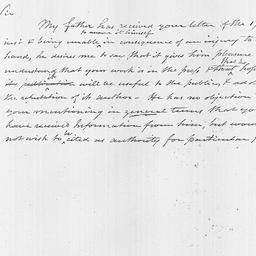 Sir
My father has received your letter of the 1
inst & being unable in consequence of an injury to his
to answer it himself
hand, he desires me to say that it gives him pleasure
understand that your work is in the press & that he hopes
its publication will be useful to the public & add
the reputation of its author - He has no objection
your mentioning in general terms that you
have received information from him, but would
not wish to be cited as authority for particular